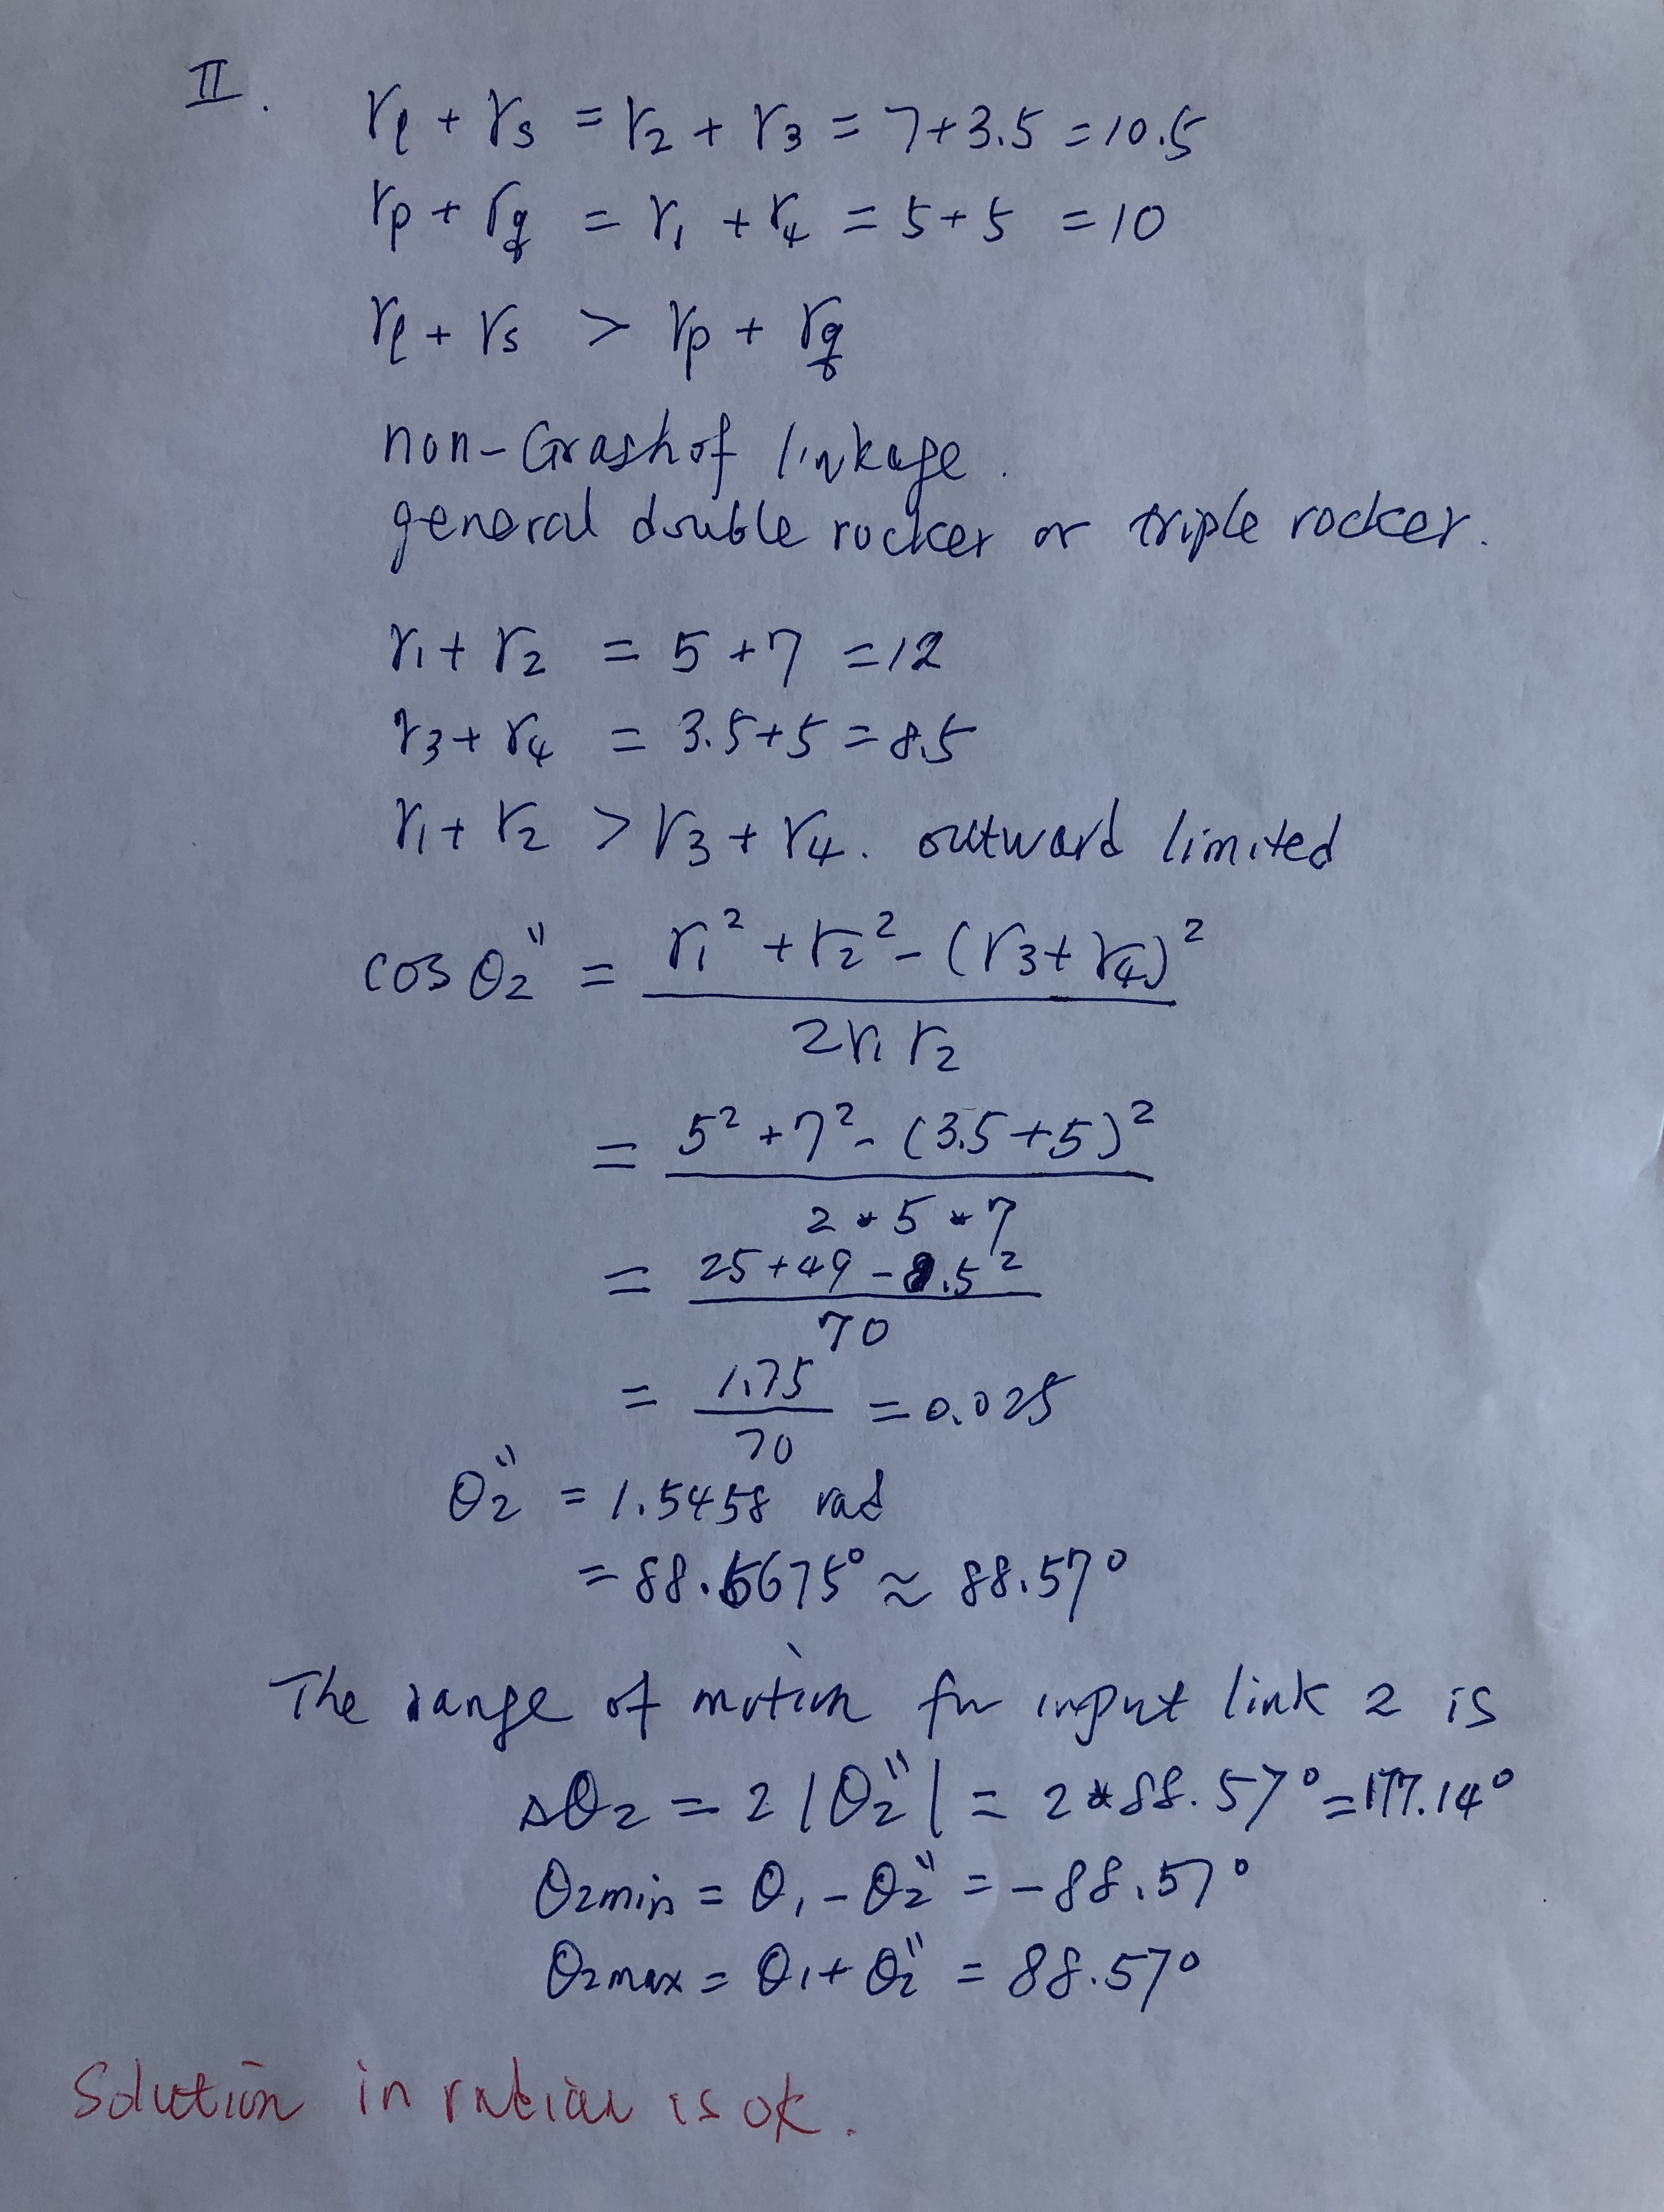 II.
rℓ + rs = r2 + r3 = 7+3.5 = 10.5
rp + rq = r1 + r4 = 5+5 = 10
rℓ + rs > rp + rq
non-Grashof linkage.
general double rocker or triple rocker.
r1 + r2 = 5+7 = 12
r3 + r4 = 3.5+5 = 8.5
r1 + r2 > r3 + r4. outward limited
cos θ2'' = (r1² + r2² - (r3 + r4)²) / (2 r1 r2)
= (5² + 7² - (3.5+5)²) / (2 * 5 * 7)
= (25+49-8.5²) / 70
= 1.75 / 70 = 0.025
θ2'' = 1.5458 rad
= 88.5675° ≈ 88.57°
The range of motion for input link 2 is
Δθ2 = 2|θ2''| = 2*88.57° = 177.14°
θ2min = θ1 - θ2'' = -88.57°
θ2max = θ1 + θ2'' = 88.57°
Solution in radian is ok.